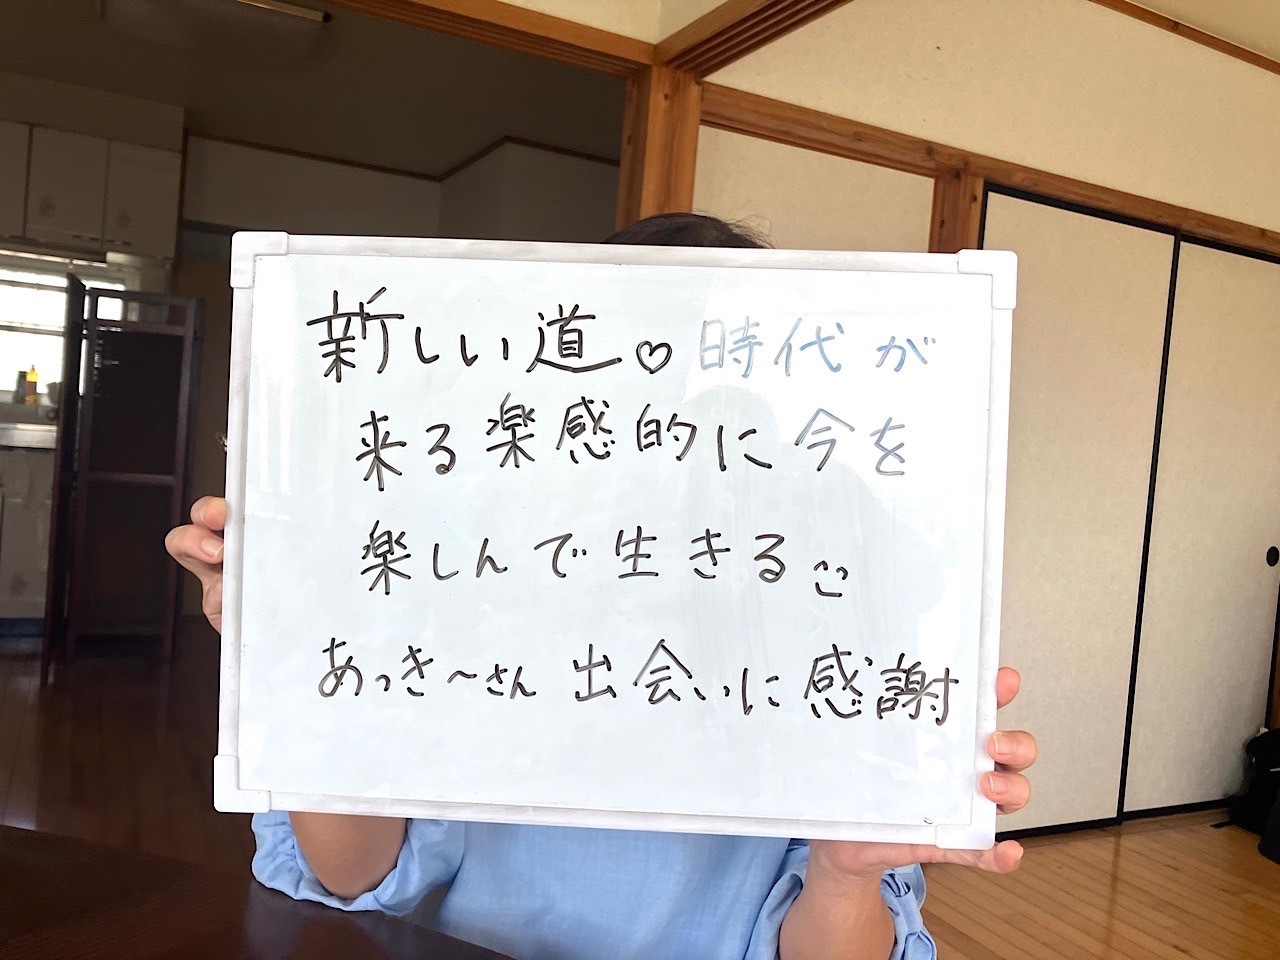 新しい道♡時代が
来る楽感的に今を
楽しんで生きる
あっき〜さん 出会いに感謝